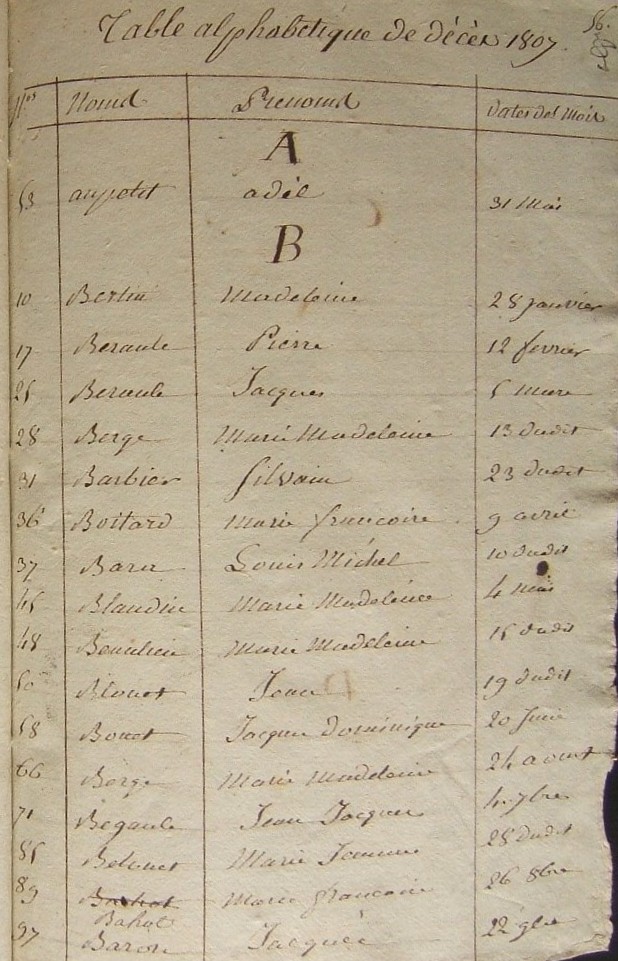 56.
Table alphabetique de décès 1807.
Nos Noms Prenoms Dates des Mois
A
53 aupetit adél 31 Mai
B
10 Bertin Madeleine 28 janvier
17 Beraule Pierre 12 fevrier
25 Beraule Jacques 5 Mars
28 Berge Marie Madeleine 13 dudit
31 Barbier Silvain 23 dudit
36 Boitard Marie francoise 9 avril
37 Baru Louis Michel 10 dudit
45 Blandin Marie Madeleine 4 mai
48 Marie Madeleine 15 dudit
50 Blouet Jean 19 dudit
58 Bouet Jacque Dominique 20 Juin
66 Berge Marie Madeleine 24 aoust
71 Begaule Jean Jacques 4. 7bre
85 Belouet Marie Jeanne 28 dudit
89 Marie francoise 26 8bre
Bahot
97 Baron Jacques 22 9bre